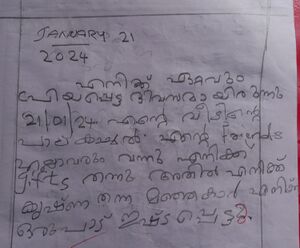 JANUARY 21
2024
എനിക്ക് ഏറ്റവും
പ്രിയപ്പെട്ട ദിവസമായിരുന്നു
21/01/24 എന്റെ വീടിന്റെ
പാല് കാച്ചൽ. എന്റെ Friends
എല്ലാവരും വന്നു എനിക്ക്
gifts തന്നു അതിൽ എനിക്ക്
കൃഷ്ണ തന്ന മഞ്ഞകാർ എനിക്ക്
ഒരുപാട് ഇഷ്ടപ്പെട്ടു.